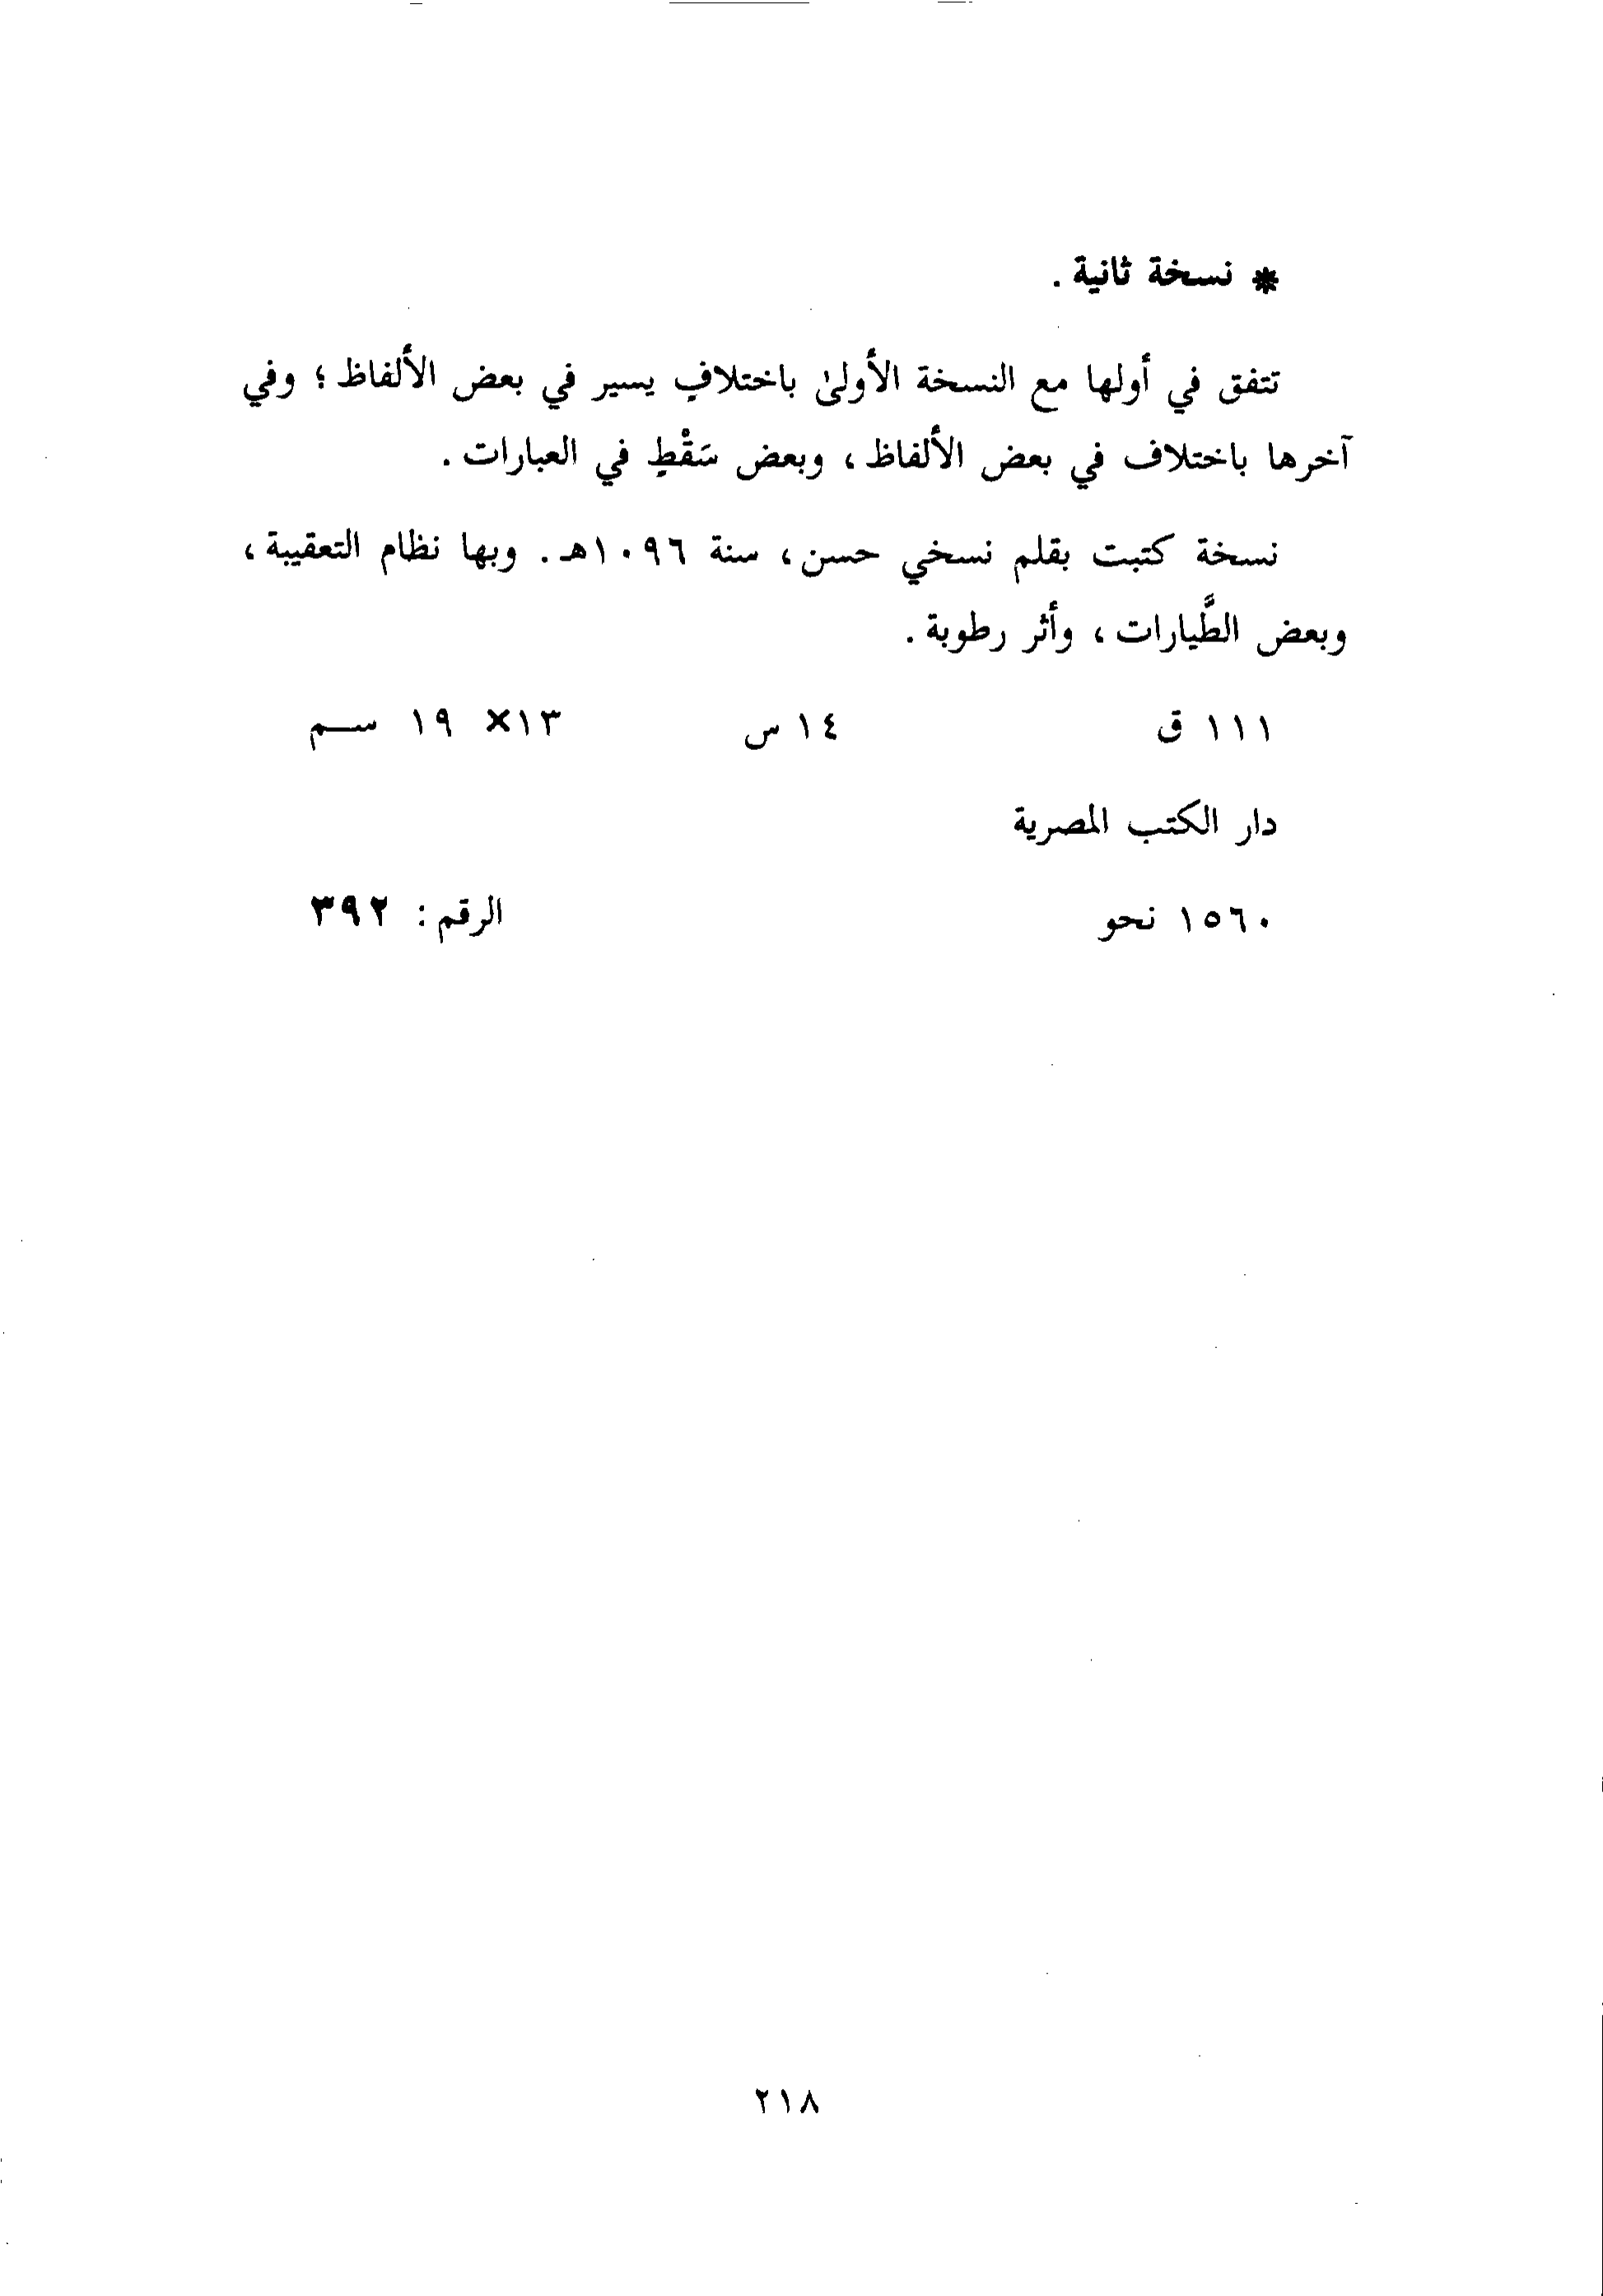 * نسخة ثانية .
تتفق في أولها مع النسخة الأولىٰ باختلافٍ يسير في بعض الألفاظ ؛ وفي
آخرها باختلاف في بعض الألفاظ ، وبعض سَقْطٍ في العبارات .
نسخة كتبت بقلم نسخي حسن ، سنة ١٠٩٦هـ . وبها نظام التعقيبة ،
وبعض الطَّيارات ، وأثر رطوبة .
١١١ ق ١٤ س ١٣× ١٩ ســم
دار الكتب المصرية
١٥٦٠ نحو الرقم : ٣٩٢
٢١٨